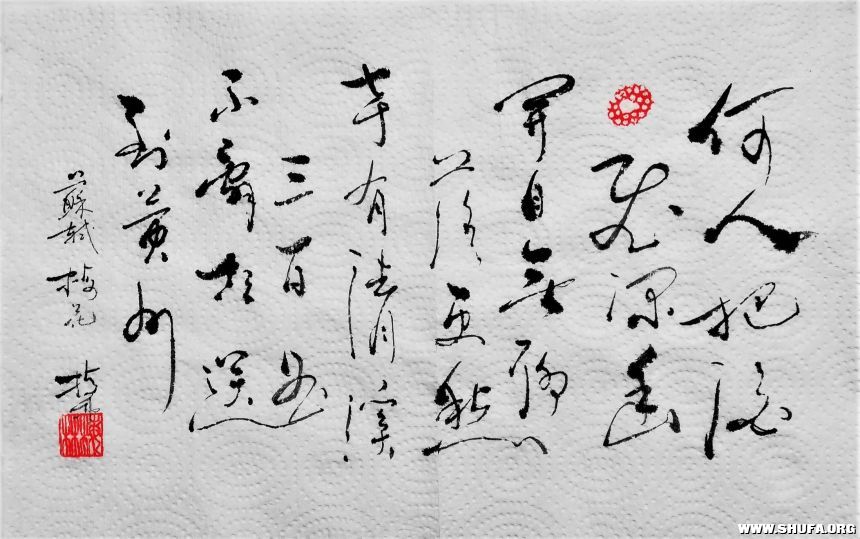 何人把酒
慰深幽
開自無聊
落更愁
幸有清溪
三百曲
不辭相送
到黄州
蘇軾梅花
WWW.SHUFA.ORG